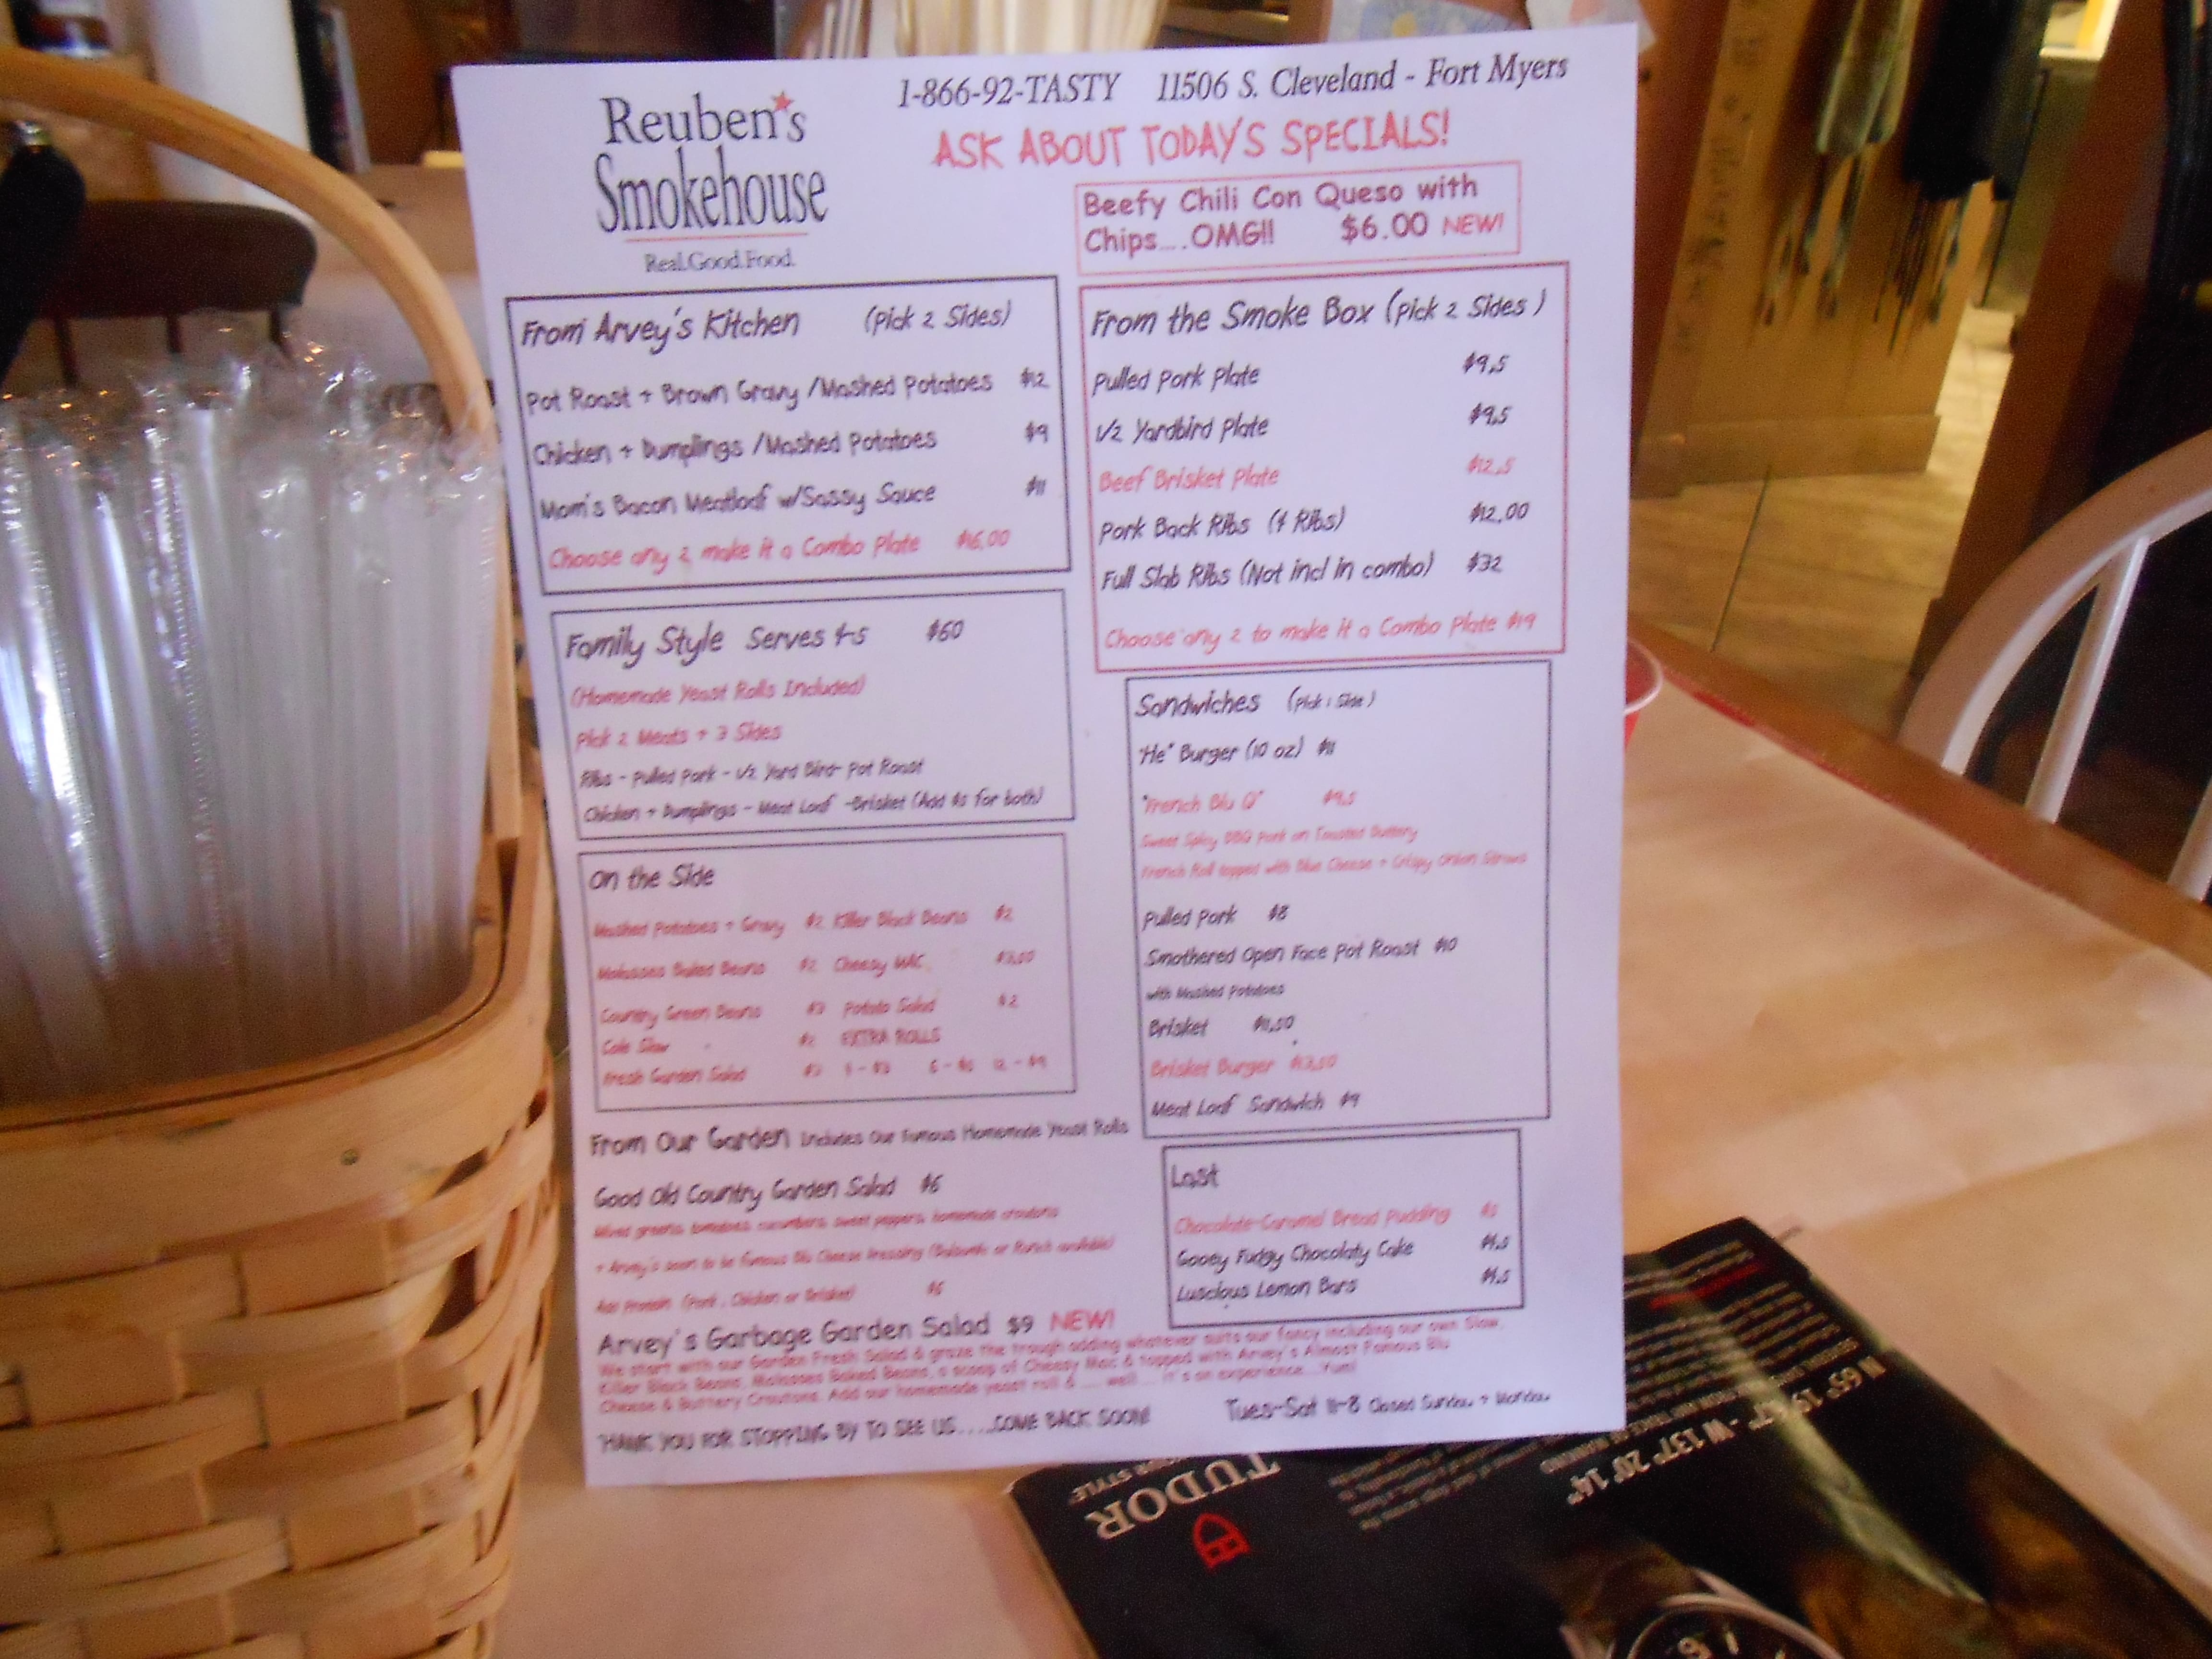 Reuben's
Smokehouse
Real.Good.Food.
1-866-92-TASTY 11506 S. Cleveland - Fort Myers
ASK ABOUT TODAY'S SPECIALS!
Beefy Chili Con Queso with
Chips....OMG!! $6.00 NEW!
From Arvey's Kitchen (Pick 2 Sides)
Pot Roast + Brown Gravy /Mashed Potatoes $12
Chicken + Dumplings /Mashed Potatoes $9
Mom's Bacon Meatloaf w/Sassy Sauce $11
Choose any 2 make it a Combo Plate $16.00
Family Style Serves 4-5 $60
(Homemade Yeast Rolls Included)
Pick 2 Meats + 3 Sides
Ribs - Pulled Pork - 1/2 Yard Bird- Pot Roast
Chicken + Dumplings - Meat Loaf -Brisket (Add $5 for both)
On the Side
Mashed Potatoes + Gravy $2 Killer Black Beans $2
Molasses Baked Beans $2 Cheesy MAC $3.00
Country Green Beans $3 Potato Salad $2
Cole Slaw $2 EXTRA ROLLS
Fresh Garden Salad $3 12 - $9
From Our Garden Includes Our Famous Homemade Yeast Rolls
Good Old Country Garden Salad $6
Mixed greens, tomatoes, cucumbers, sweet peppers, homemade croutons
+ Arvey's soon to be famous Blu Cheese Dressing (Balsamic or Ranch available)
Add Protein (Pork, Chicken or Brisket) $6
Arvey's Garbage Garden Salad $9 NEW!
We start with our Garden Fresh Salad & graze the trough adding whatever suits our fancy including our own Slaw,
Killer Black Beans, Molasses Baked Beans, a scoop of Cheesy Mac & topped with Arvey's Almost Famous Blu
Cheese & Buttery Croutons. Add our homemade yeast roll & .... well.... it's an experience...Yum!
THANK YOU FOR STOPPING BY TO SEE US.....COME BACK SOON!
From the Smoke Box (Pick 2 Sides )
Pulled Pork Plate $9.5
1/2 Yardbird Plate $9.5
Beef Brisket Plate $12.5
Pork Back Ribs (4 Ribs) $12.00
Full Slab Ribs (Not incl in combo) $32
Choose any 2 to make it a Combo Plate $19
Sandwiches (Pick 1 Side )
"He" Burger (10 oz) $11
"French Blu Q" $9.5
Sweet Spicy BBQ Pork on Toasted Buttery
French Roll topped with Blue Cheese + Crispy Onion Straws
Pulled Pork $8
Smothered Open Face Pot Roast $10
with Mashed Potatoes
Brisket $11.50
Brisket Burger $13.50
Meat Loaf Sandwich $9
Last
Chocolate-Caramel Bread Pudding $5
Gooey Fudgy Chocolaty Cake $4.5
Luscious Lemon Bars $4.5
Tues-Sat 11-8 Closed Sunday + Monday
TUDOR